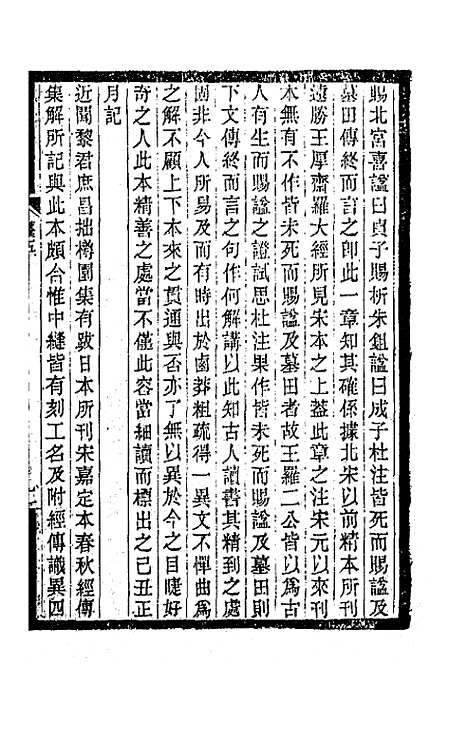 賜北宮喜諡曰貞子賜析朱鉏諡曰成子杜注皆死而賜諡及
墓田傳終而言之卽此一章知其確係據北宋以前精本所刊
遠勝王厚齋羅大經所見宋本之上葢此章之注宋元以來刊
本無有不作皆未死而賜諡及墓田者故王羅二公皆以為古
人有生而賜諡之證試思杜注果作皆未死而賜諡及墓田則
下文傳終而言之句作何解講以此知古人讀書其精到之處
固非今人所易及而有時出於鹵莽粗疏得一異文不憚曲為
之解不顧上下本來之貫通與否亦了無以異於今之目睫好
奇之人此本精善之處當不僅此容當細讀而標出之己丑正
月記
近閱黎君庶昌拙樽園集有跋日本所刊宋嘉定本春秋經傳
集解所記與此本頗合惟中縫皆有刻工名及附經傳識異四